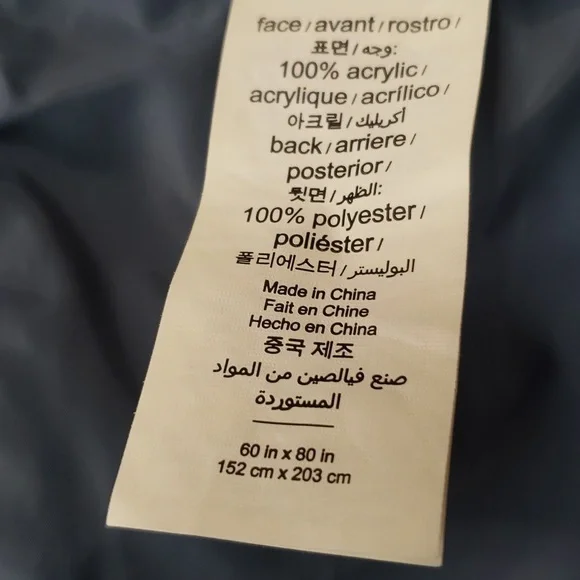 face / avant / rostro /
표면 / وجه:
100% acrylic /
acrylique / acrílico /
아크릴 / أكريليك
back / arriere /
posterior /
뒷면 / الظهر:
100% polyester /
poliéster /
폴리에스터 / البوليستر
Made in China
Fait en Chine
Hecho en China
중국 제조
صنع فيالصين من المواد
المستوردة
60 in x 80 in
152 cm x 203 cm